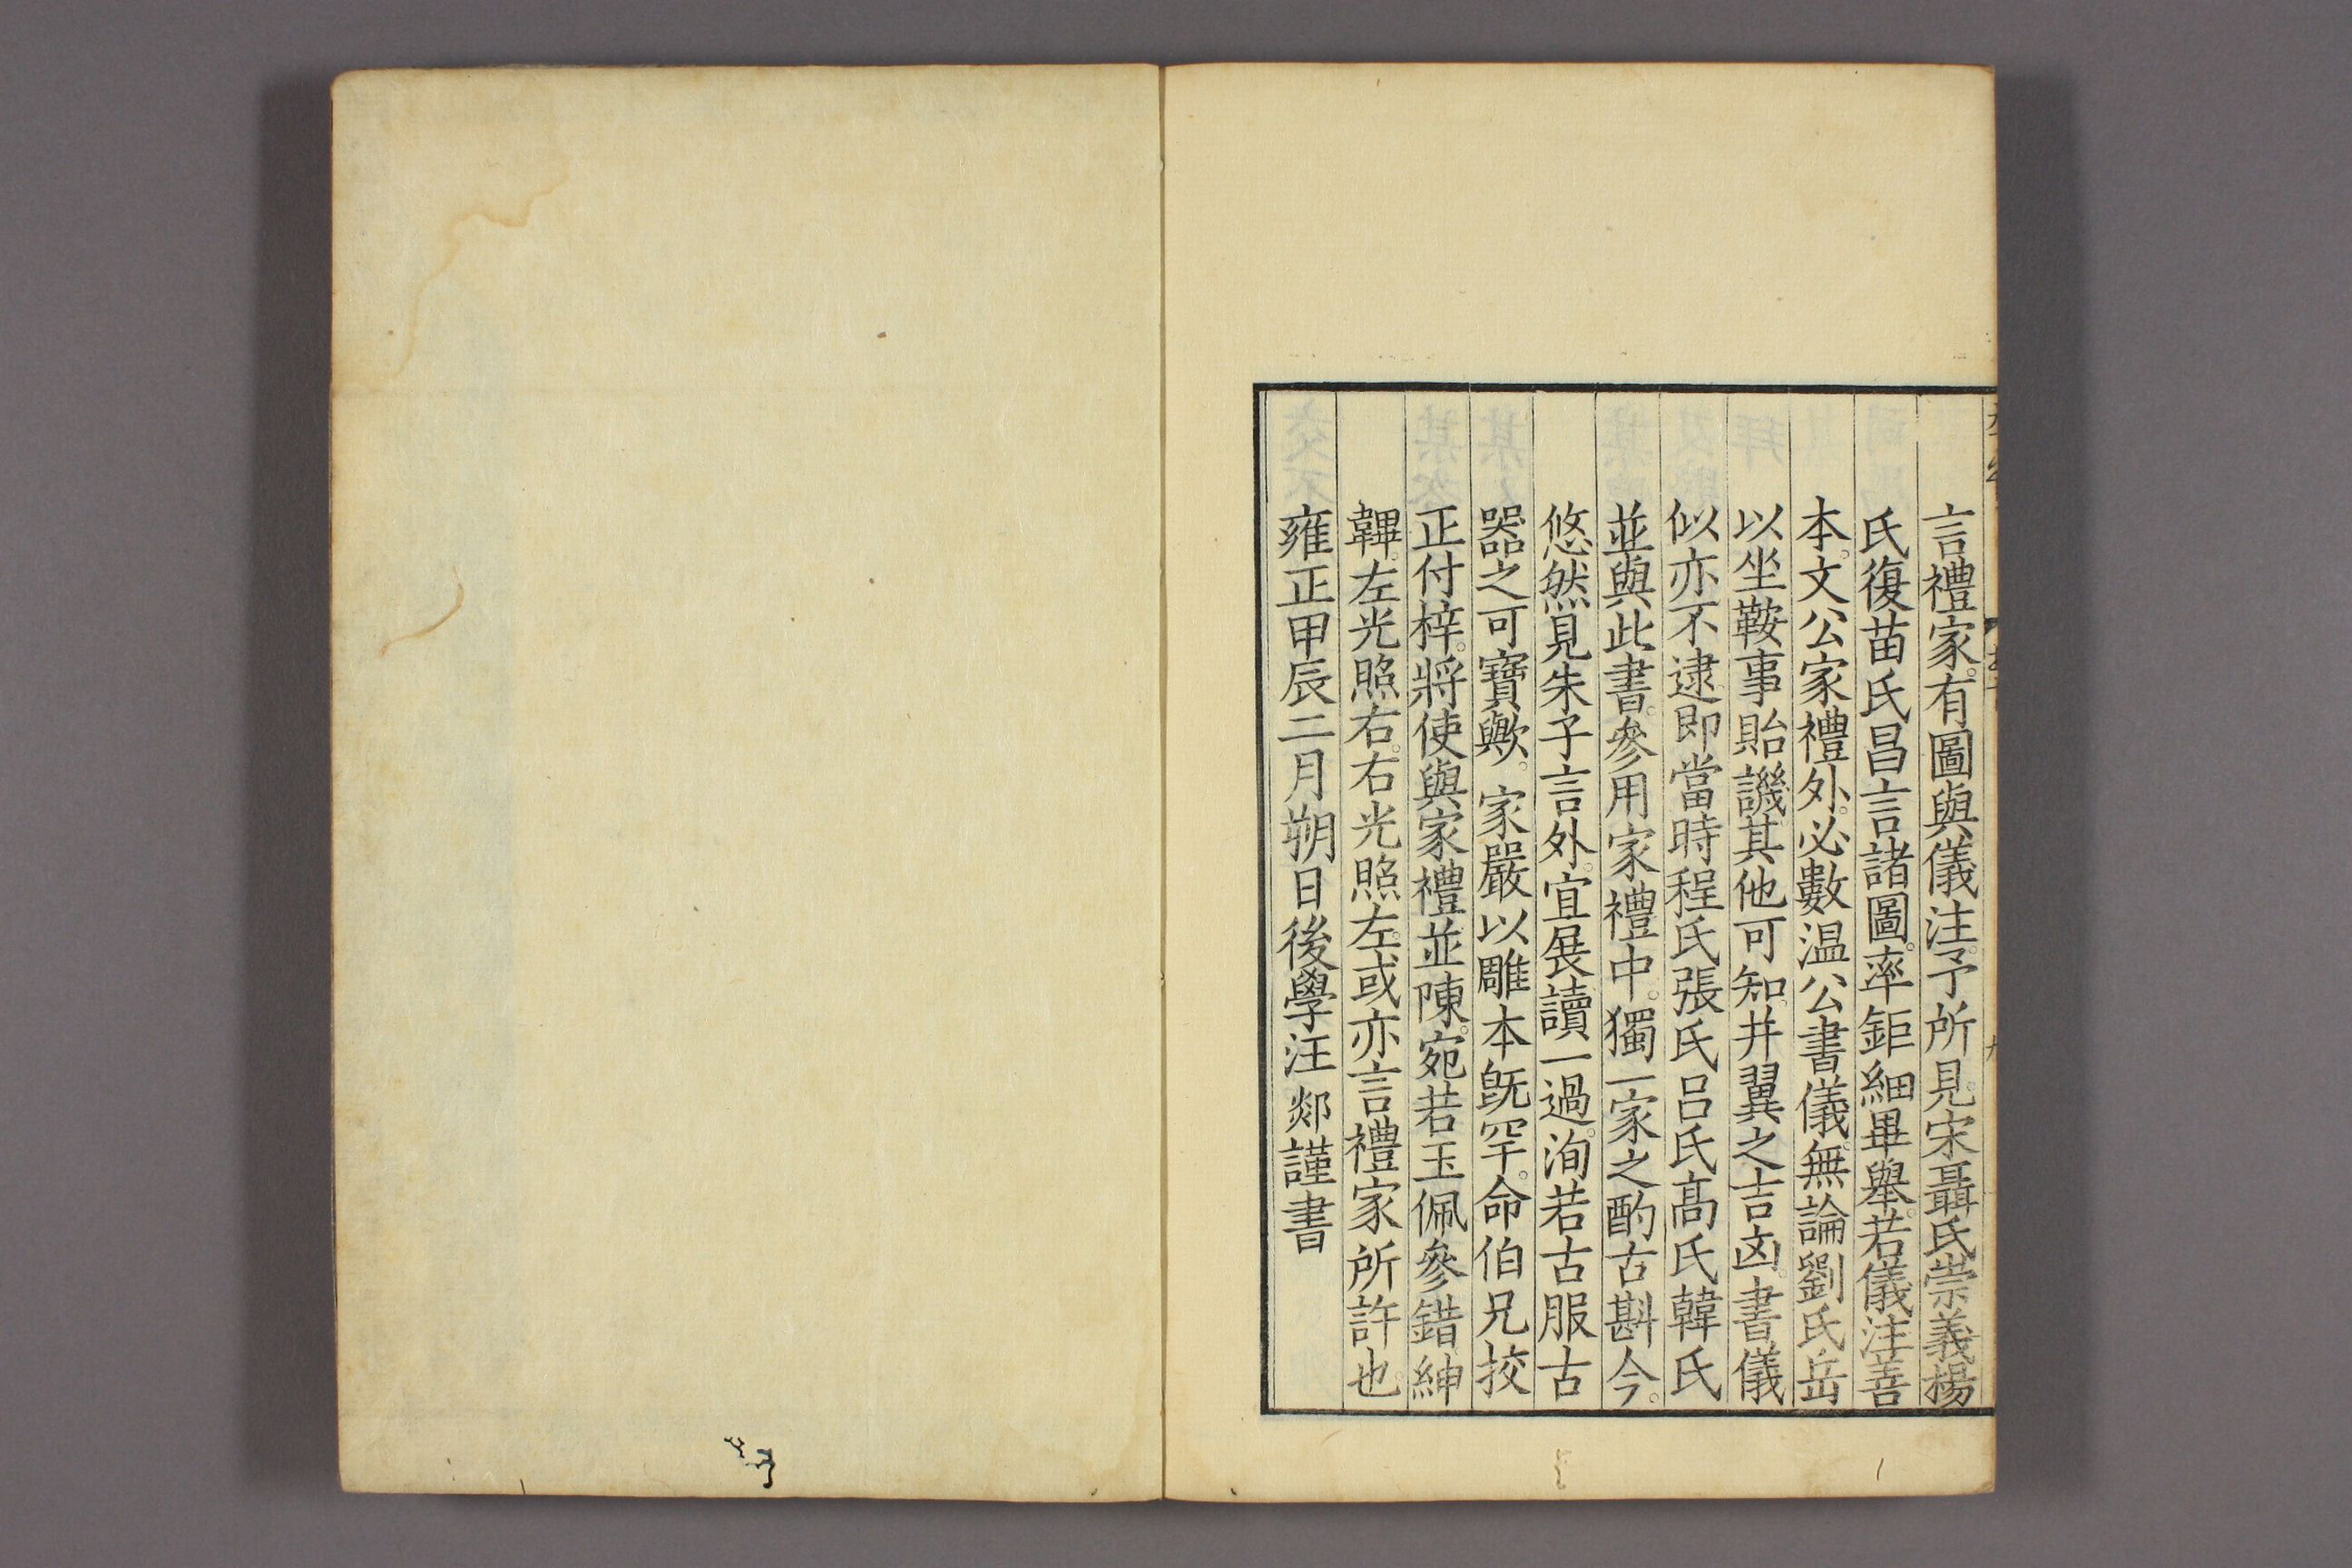 言禮家。有圖與儀注。予所見。宋聶氏崇義楊
氏復苗氏昌言諸圖。率鉅細畢舉。若儀注善
本。文公家禮外。必數温公書儀。無論劉氏岳
以坐鞍事貽譏。其他可知。井翼之吉凶書儀
似亦不逮。即當時程氏張氏呂氏髙氏韓氏
並與此書。參用家禮中。獨一家之酌古斟今。
悠然見朱子言外。宜展讀一過。洵若古服古
器之可寶歟。家嚴以雕本旣罕。命伯兄挍
正付梓。將使與家禮並陳。宛若玉佩參錯。紳
韠。左光照右。右光照左。或亦言禮家所許也。
雍正甲辰二月朔日後學汪郯謹書